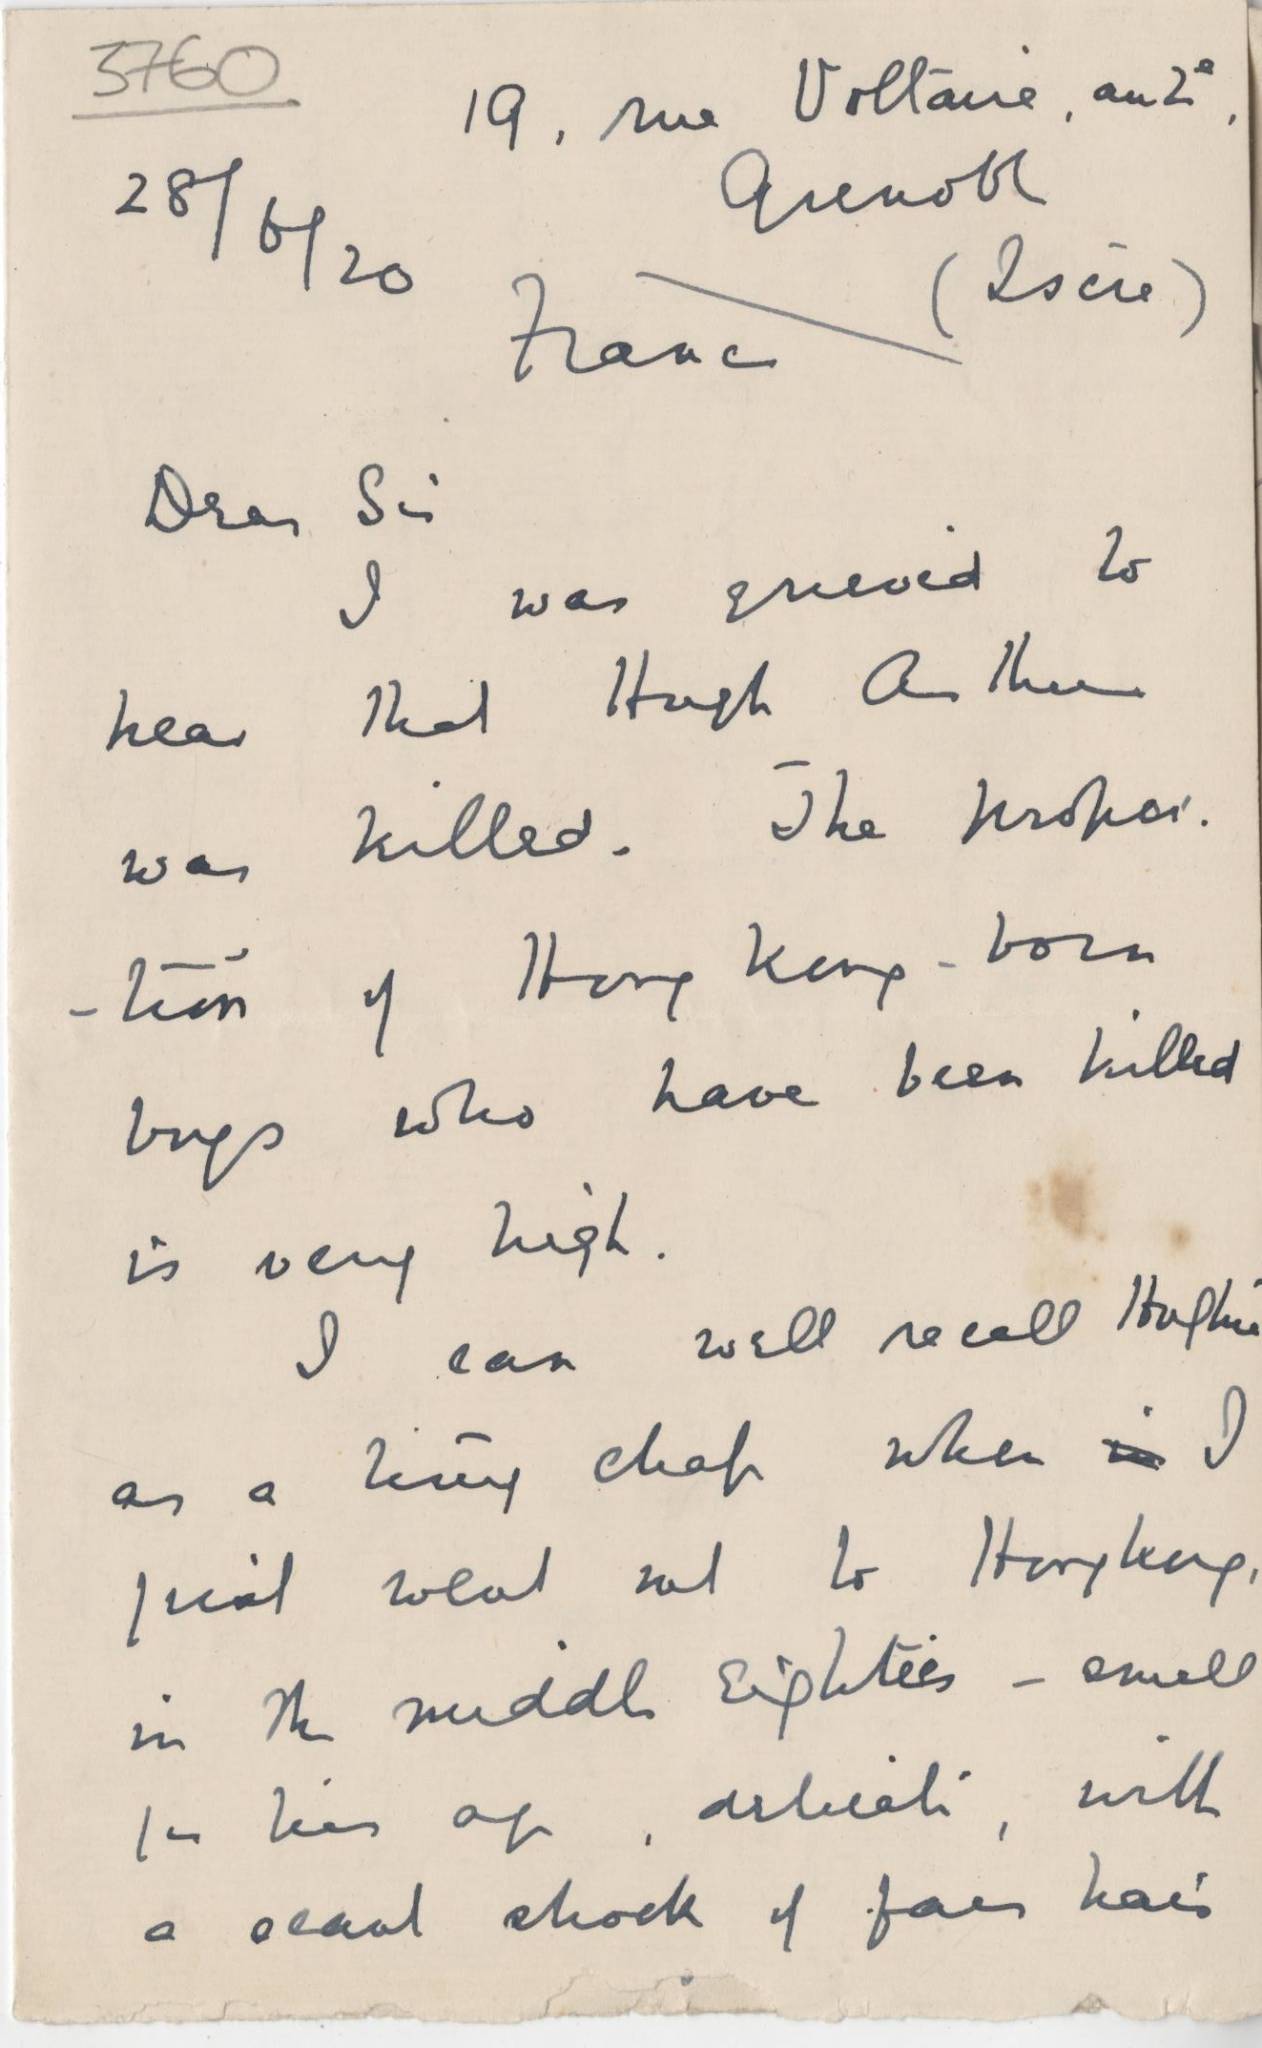 3760
19, rue Voltaire, au 2e,
28/6/20
Grenoble
(Isère)
France
Dear Sir
I was grieved to
hear that Hugh Arthur
was killed. The propor-
-tion of Hong Kong-born
boys who have been killed
is very high.
I can well recall Hughie
as a tiny chap when in I
first went out to Hongkong,
in the middle Eighties - small
for his age, delicate, with
a scant shock of fair hair